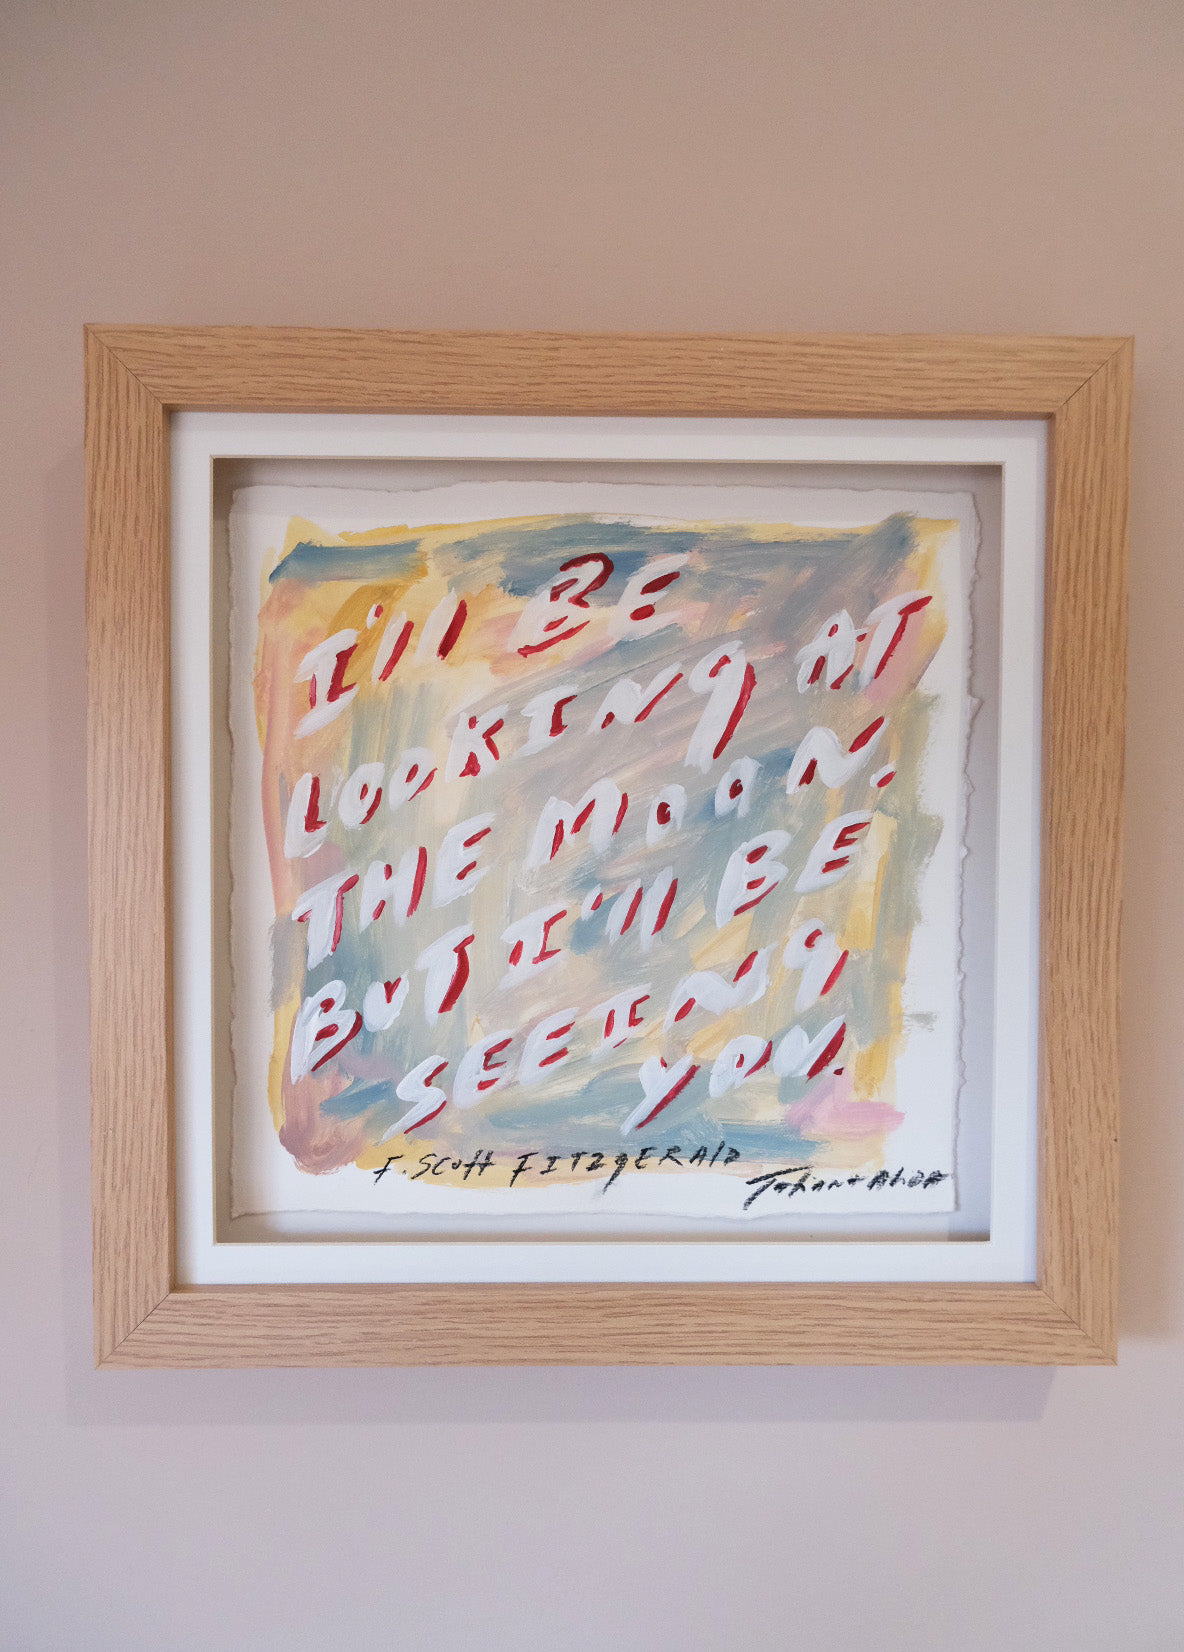 I'll BE
LOOKING AT
THE MOON.
BUT I'll BE
SEEING
YOU.
F. Scott FITZgERAld